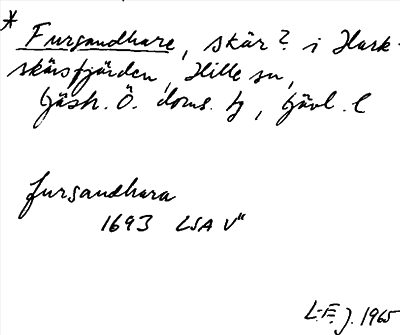 * Fursandhare, skär? i Hark-
skärsfjärden, Hille sn,
Gästr. Ö. doms. hg, Gävl. l
fursandhara
1693 LSA V"
L.E.J. 1965